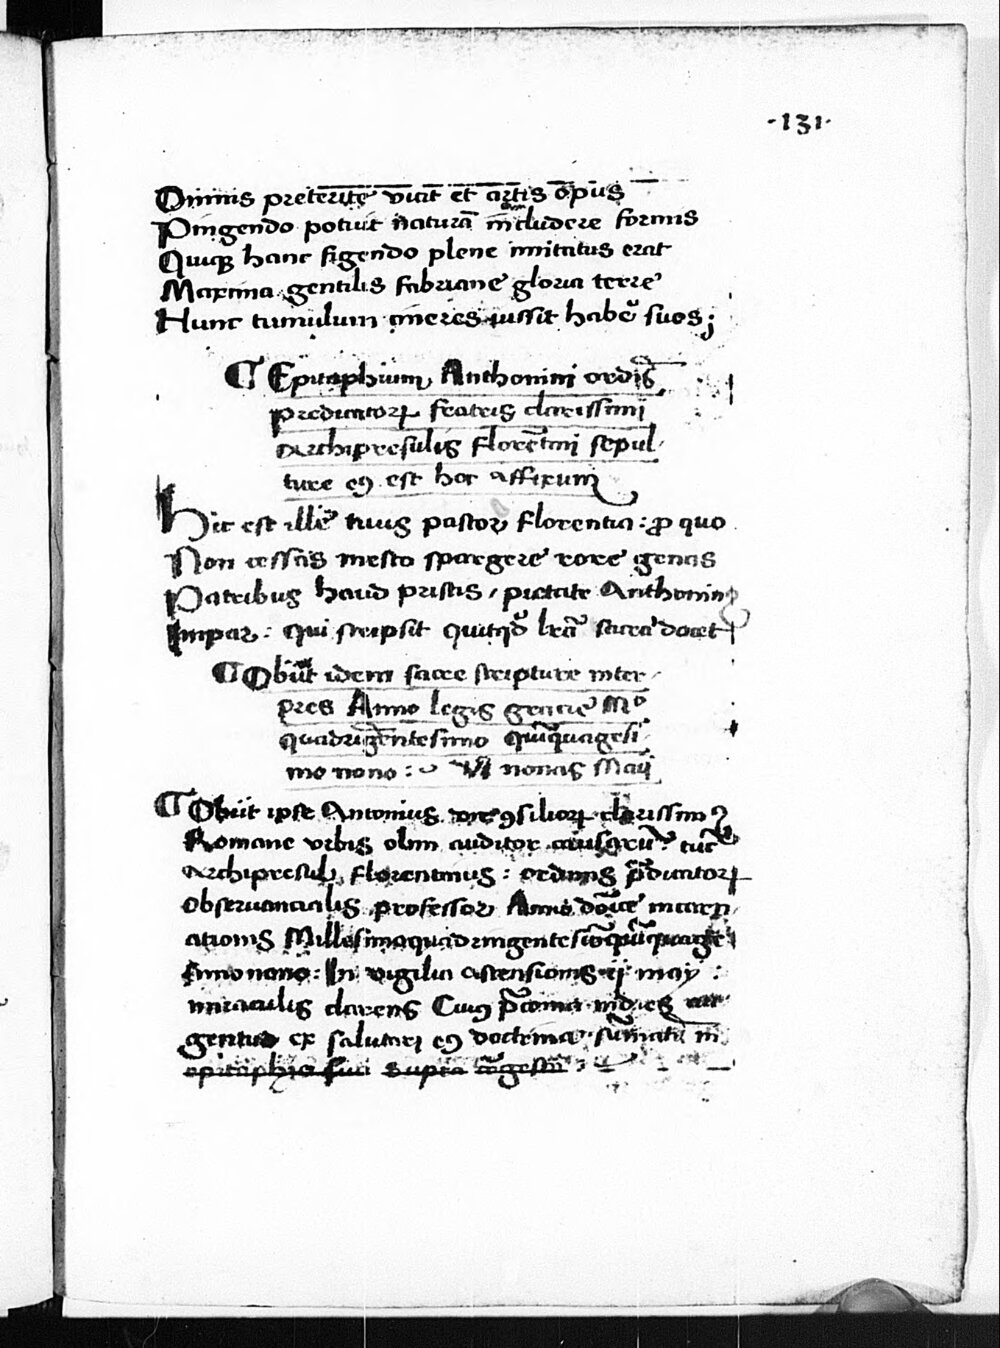 ·131·
Omnis preterite vicit et artis opus
Pingendo potuit naturā includere formis
Quiq₃ hanc figendo plene imitatus erat
Maxima gentilis fabriane gloria terre
Hunc tumulum cineres iussit habē suos;
¶ Epitaphium Anthonini ordīs
predicatorꝝ fratris clarissimi
Archipresulis florētini sepul
ture eꝰ est hoc affixum
Hic est ille tuus pastor florentia: ꝓ quo
Non cessas mesto spargere rore genas
Patribus haud priscis, pietate Anthoninꝰ
Impar: qui scripsit quitqd lrā sacra docet
¶ Obiit idem sacre scripture inter
pres Anno legis gracie Mº
quadringētesimo quīquagesi
mo nono: VI nonas Maij
¶ Obiit ipse Antonius ꝯsiliorꝝ clarissimꝰ
Romane vrbis olim auditor causarū: tūc
Archipresul florentinus: ordinis p̄dicatorꝝ
obseruancialis professor Anno dōice incarn
ationis Millesimoquadringentesimoquīquage
simonono: In vigilia ascensionis ij may:
miraculis clarens Cuiꝰ
gentia ex salutari eꝰ doctrina sūmatī in
epitaphio suo supra cōgesta